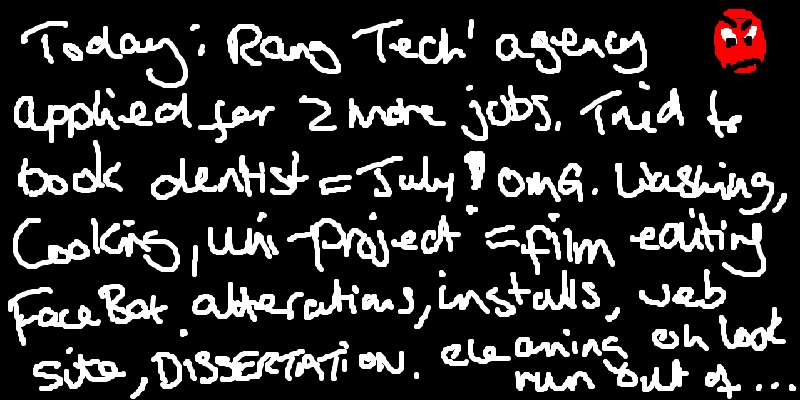 Today: Rang Tech' agency
applied for 2 more jobs. Tried to
book dentist = July! omG. Washing,
Cooking, uni-project = film editing
FaceBat alterations, installs, web
site, DISSERTATION. cleaning oh look
run out of ...